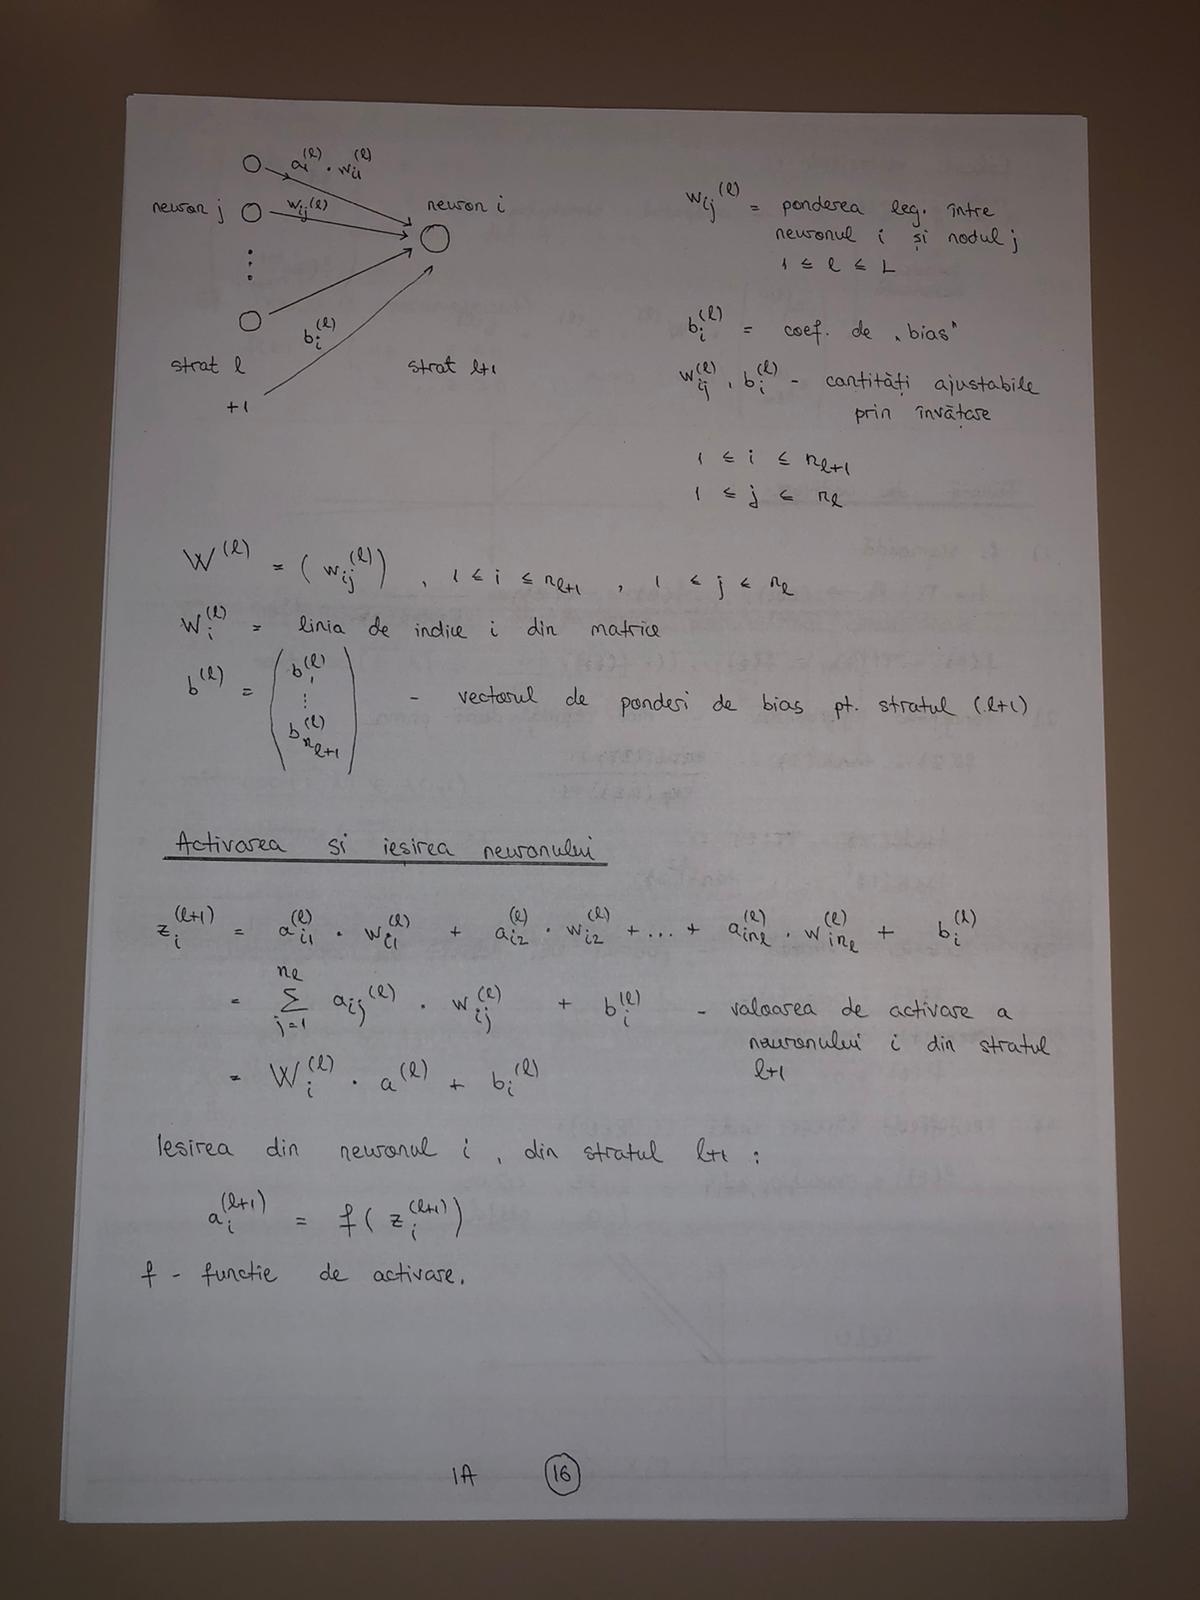 a₁^(l) · w_i1^(l)
neuron j
w_ij^(l)
neuron i
b_i^(l)
strat l
strat l+1
+1
w_ij^(l) = ponderea leg. între
neuronul i și nodul j
1 ≤ l ≤ L
b_i^(l) = coef. de „bias"
w_ij^(l), b_i^(l) - cantități ajustabile
prin învățare
1 ≤ i ≤ n_l+1
1 ≤ j ≤ n_l
W^(l) = (w_ij^(l)), 1 ≤ i ≤ n_l+1, 1 ≤ j ≤ n_l
W_i^(l) = linia de indice i din matrice
b^(l) = (b_1^(l) ⋮ b_n_l+1^(l)) - vectorul de ponderi de bias pt. stratul (l+1)
Activarea si ieșirea neuronului
z_i^(l+1) = a_i1^(l) · w_i1^(l) + a_i2^(l) · w_i2^(l) + ... + a_in_l^(l) · w_in_l^(l) + b_i^(l)
= Σ_j=1^n_l a_ij^(l) · w_ij^(l) + b_i^(l) - valoarea de activare a
neuronului i din stratul
l+1
= W_i^(l) · a^(l) + b_i^(l)
Iesirea din neuronul i, din stratul l+1 :
a_i^(l+1) = f(z_i^(l+1))
f - functie de activare.
IA 16